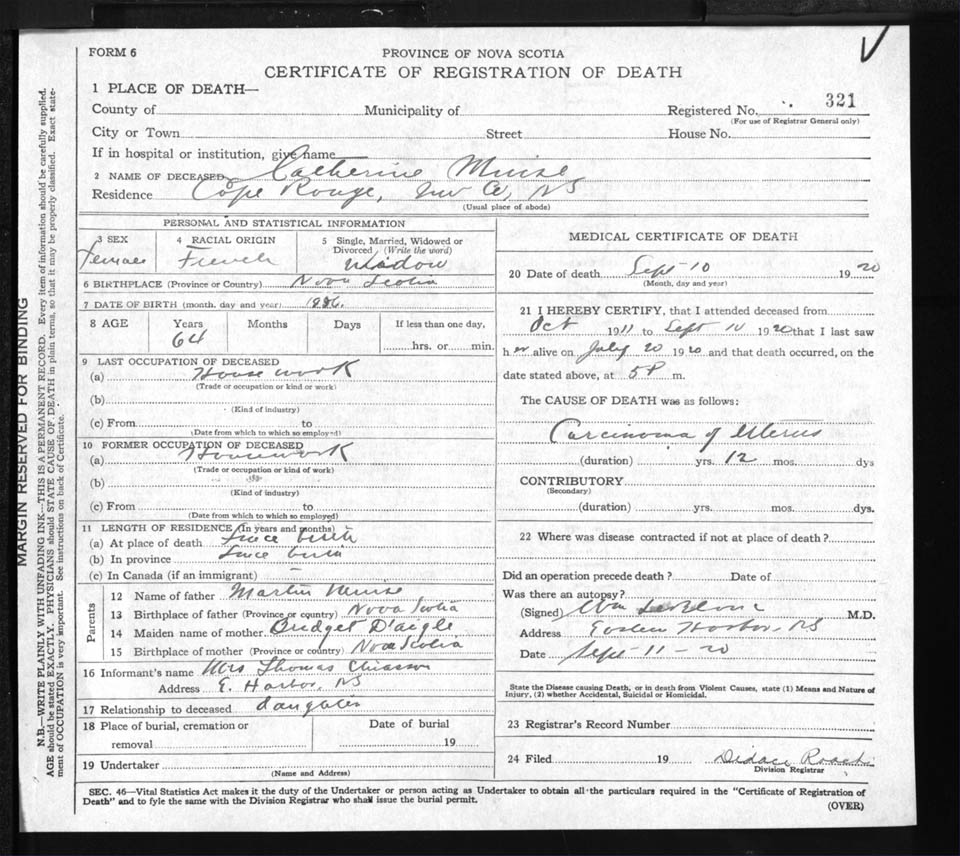 FORM 6
PROVINCE OF NOVA SCOTIA
CERTIFICATE OF REGISTRATION OF DEATH
1 PLACE OF DEATH—
County of Municipality of Registered No. 321
(For use of Registrar General only)
City or Town Street House No.
If in hospital or institution, give name
2 NAME OF DECEASED Catherine Muise
Residence Cope Rouge, Inv Co, NS
(Usual place of abode)
PERSONAL AND STATISTICAL INFORMATION
3 SEX
Female
4 RACIAL ORIGIN
French
5 Single, Married, Widowed or
Divorced (Write the word)
Widow
6 BIRTHPLACE (Province or Country) Nova Scotia
7 DATE OF BIRTH (month, day and year)
8 AGE Years Months Days If less than one day,
64 hrs. or min.
9 LAST OCCUPATION OF DECEASED
(a) House work
(Trade or occupation or kind or work)
(b)
(Kind of industry)
(c) From to
(Date from which to which so employed)
10 FORMER OCCUPATION OF DECEASED
(a) Housework
(Trade or occupation or kind of work)
(b)
(Kind of industry)
(c) From to
(Date from which to which so employed)
11 LENGTH OF RESIDENCE (In years and months)
(a) At place of death Since birth
(b) In province Since birth
(c) In Canada (if an immigrant) —
Parents
12 Name of father Martin Muise
13 Birthplace of father (Province or country) Nova Scotia
14 Maiden name of mother Bridget D'aigle
15 Birthplace of mother (Province or country) Nova Scotia
16 Informant's name Mrs Thomas Chiasson
Address E. Harbor, NS
17 Relationship to deceased daughter
18 Place of burial, cremation or Date of burial
removal 19
19 Undertaker
(Name and Address)
MEDICAL CERTIFICATE OF DEATH
20 Date of death Sept 10 1920
(Month, day and year)
21 I HEREBY CERTIFY, that I attended deceased from
Oct 1911 to Sept 10 1920 that I last saw
her alive on July 20 1920 and that death occurred, on the
date stated above, at 5 P m.
The CAUSE OF DEATH was as follows:
Carcinoma of Uterus
(duration) yrs. 12 mos. dys
CONTRIBUTORY
(Secondary)
(duration) yrs. mos. dys.
22 Where was disease contracted if not at place of death?
Did an operation precede death? Date of
Was there an autopsy?
(Signed) Wm LeBlanc M.D.
Address Eastern Harbor, NS
Date Sept-11-20
State the Disease causing Death, or in death from Violent Causes, state (1) Means and Nature of
Injury, (2) whether Accidental, Suicidal or Homicidal.
23 Registrar's Record Number
24 Filed 19 Didace Roach
Division Registrar
SEC. 46—Vital Statistics Act makes it the duty of the Undertaker or person acting as Undertaker to obtain all the particulars required in the "Certificate of Registration of
Death" and to fyle the same with the Division Registrar who shall issue the burial permit.
(OVER)
MARGIN RESERVED FOR BINDING
N.B.—WRITE PLAINLY WITH UNFADING INK—THIS IS A PERMANENT RECORD. Every item of information should be carefully supplied.
AGE should be stated EXACTLY. PHYSICIANS should STATE CAUSE OF DEATH in plain terms, so that it may be properly classified. Exact state-
ment of OCCUPATION is very important. See instructions on back of Certificate.